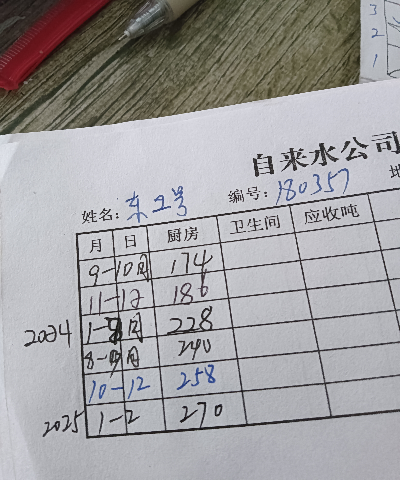 3
2
1
自来水公司
姓名: 东2号 编号: 180357 地
月 日 厨房 卫生间 应收吨
9-10月 174
11-12 186
2024 1- 月 228
8- 月 240
10-12 258
2025 1-2 270